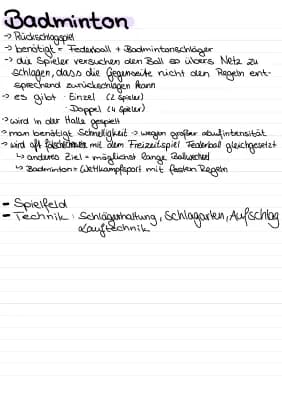 Badminton
→ Rückschlagspiel
→ benötigt = Federball + Badmintonschläger
→ die Spieler versuchen den Ball so übers Netz zu
schlagen, dass die Gegenseite nicht den Regeln ent-
sprechend zurückschlagen kann
→ es gibt · Einzel (2 Spieler)
· Doppel (4 Spieler)
→ wird in der Halle gespielt
→ man benötigt Schnelligkeit → wegen großer Laufintensität
→ wird oft fälschlicherweise mit dem Freizeitspiel Federball gleichgesetzt
↳ anderes Ziel = möglichst lange Ballwechsel
↳ Badminton = Wettkampfsport mit festen Regeln
- Spielfeld
- Technik: Schlägerhaltung, Schlagarten, Aufschlag
Lauftechnik